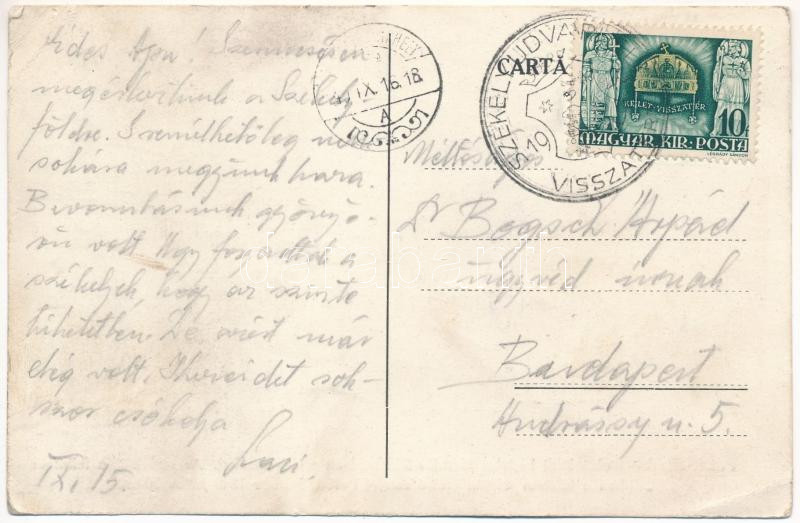 Édes Apu! Szerencsésen
megérkeztünk a Székely
földre. Remélhetőleg
sokára megyünk haza.
Bevonulásunk gyönyö-
rű volt. Úgy fogadtak a
székelyek, hogy az szinte
hihetetlen. De ezért már
elég volt. Kezeidet sok-
szor csókolja
Laci.
IX. 15.
IX. 16. 18
A
CARTĂ
SZÉKELYUDVARHELY
VISSZATÉRT
19
KELET-VISSZATÉR
10
MAGYAR·KIR·POSTA
LÉGRÁDY SÁNDOR
Méltóságos
Dr Bogsch Árpád
ügyvéd úrnak
Budapest
Andrássy u. 5.
darabanth